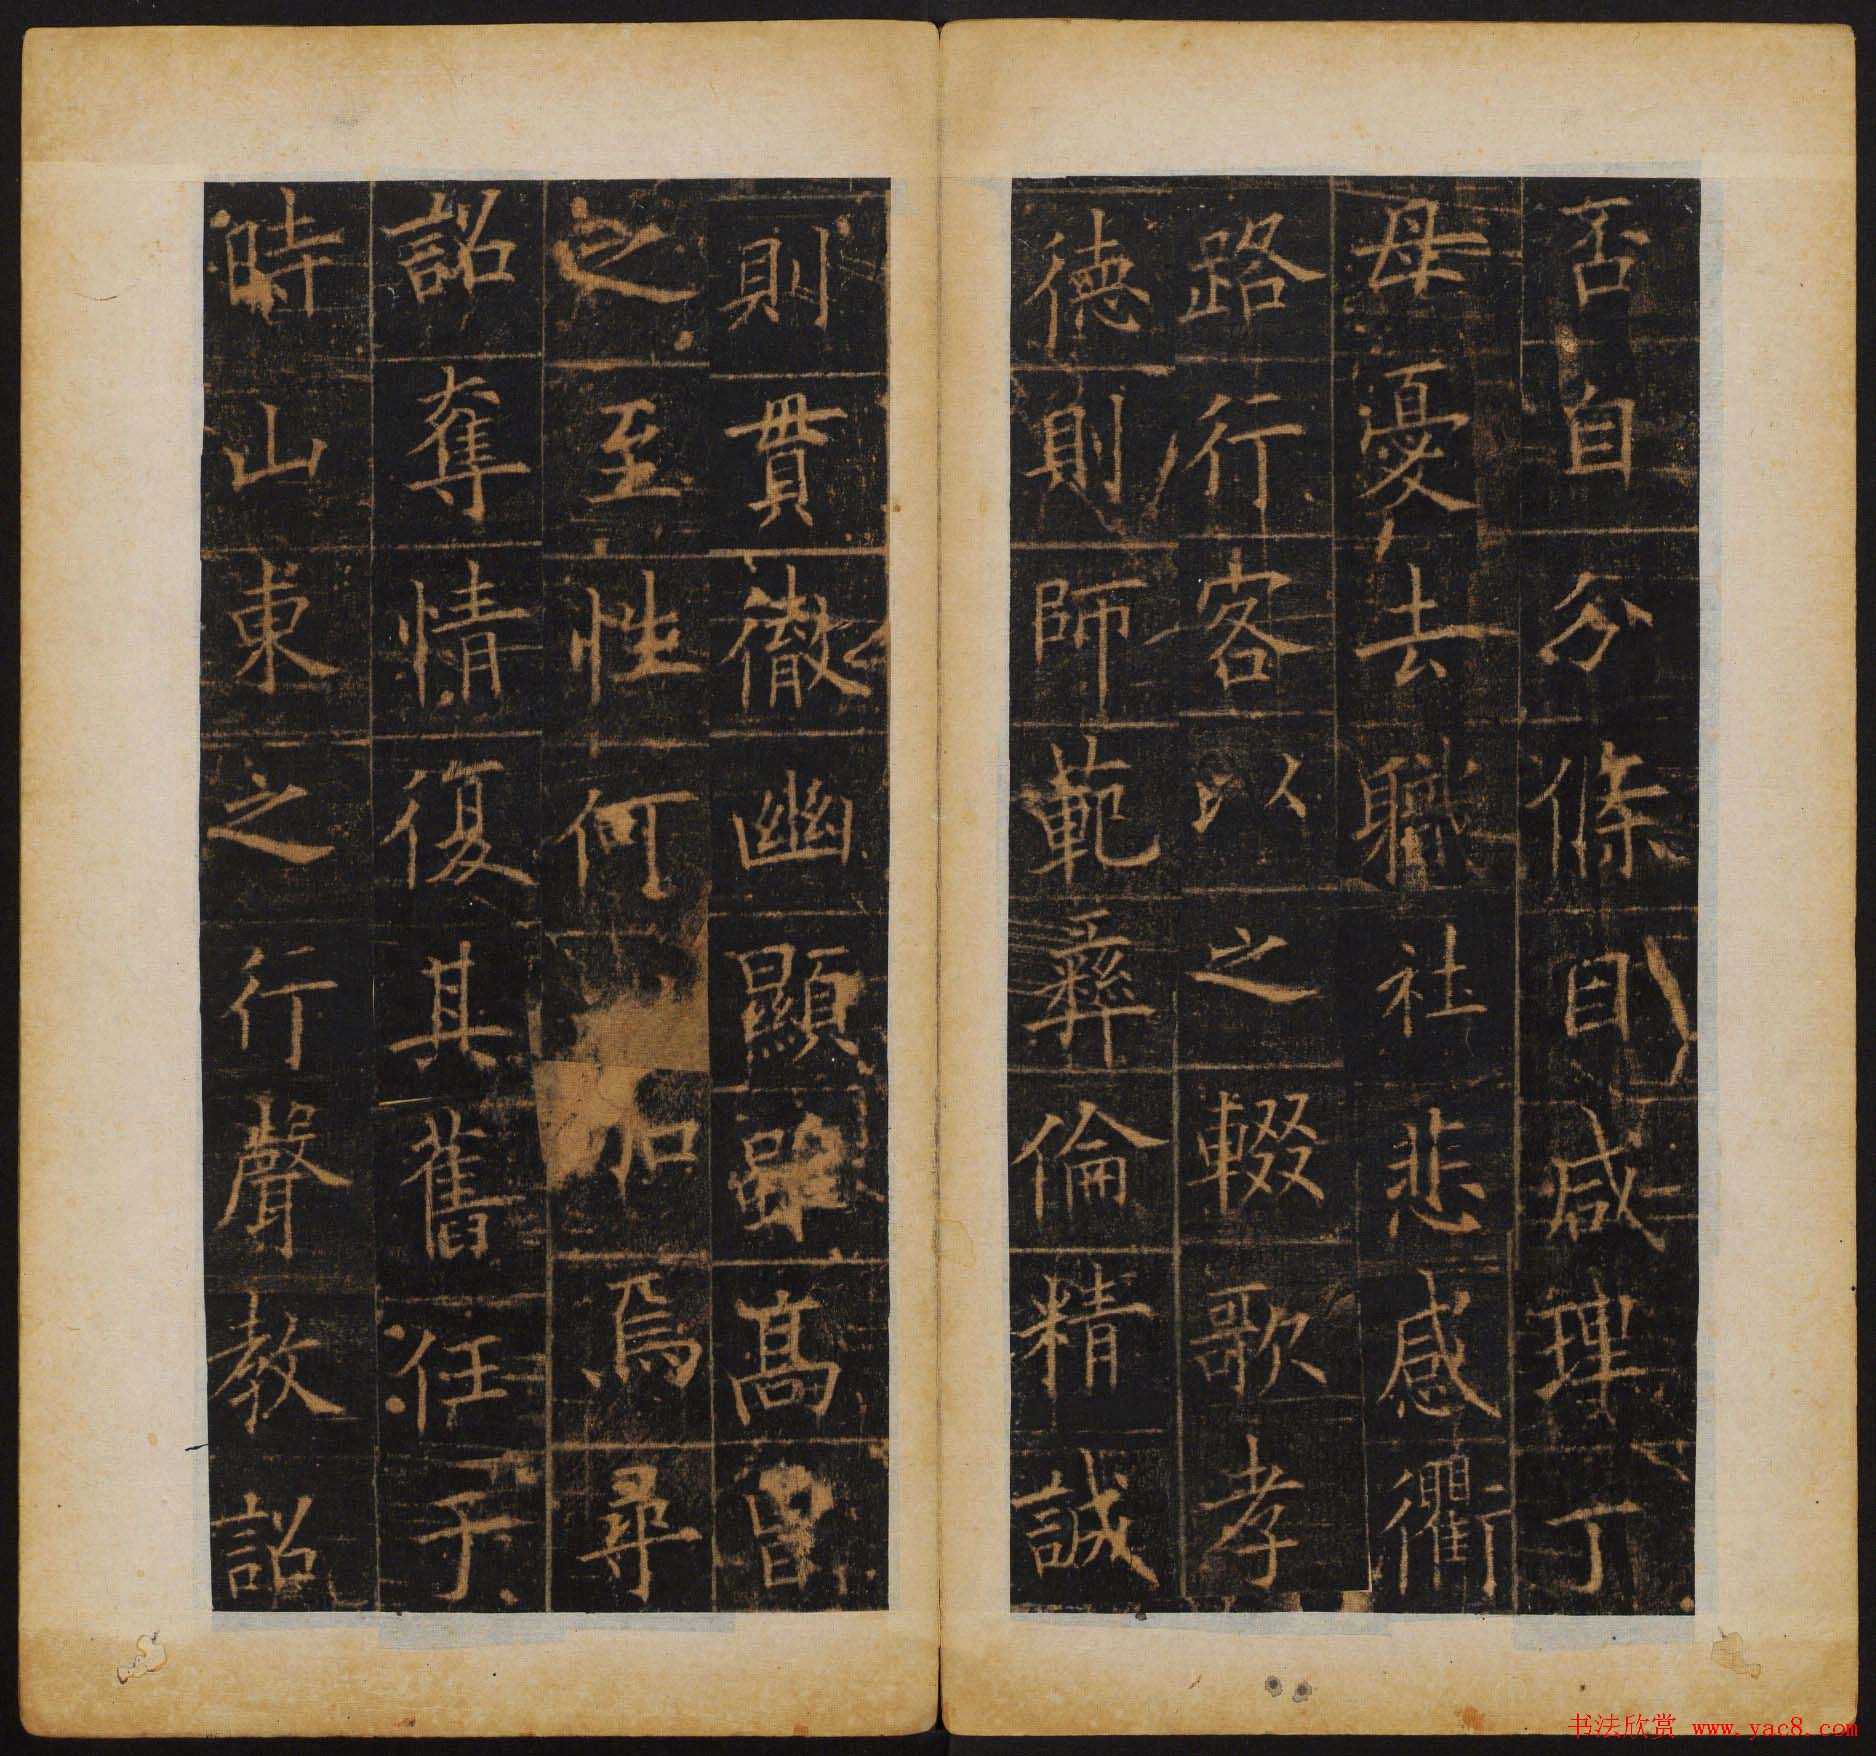 否自分條目咸理丁
母憂去職社悲感衢
路行客以之輟歌孝
德則師範彝倫精誠
則貫徹幽顯雖高曾
之至性何以加焉尋
詔奪情復其舊任于
時山東之行聲教詔
书法欣赏 www.yac8.com